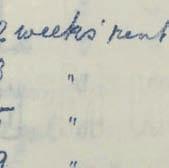 2 weeks' rent
3 "
5 "
"